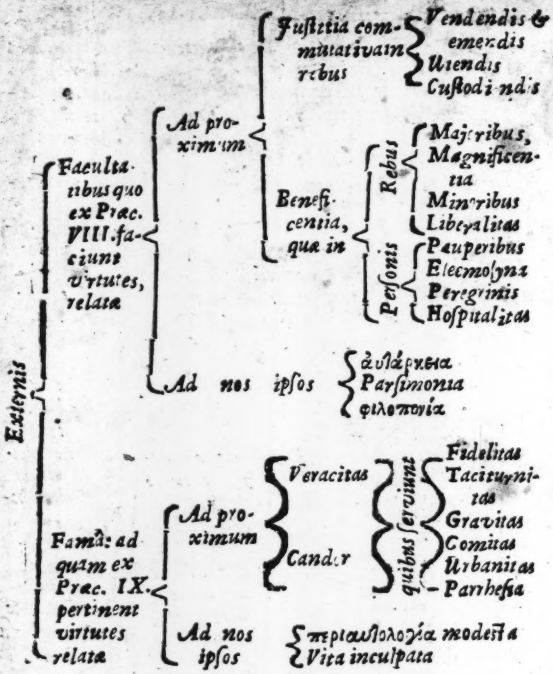 Externis
Faculta-
tibus quo
ex Præc.
VIII. fa-
ciunt
virtutes,
relatæ
Ad pro-
ximum
Justitia com-
mutativa in
rebus
Vendendis &
emendis
Utendis
Custodiendis
Benefi-
centia,
quæ in
Rebus
Majoribus,
Magnificen-
tia
Minoribus
Liberalitas
Personis
Pauperibus
Eleemosyna
Peregrinis
Hospitalitas
Ad nos ipsos
ἀυτάρκεια
Parsimonia
φιλοπονία
Famæ: ad
quam ex
Præc. IX.
pertinent
virtutes
relatæ
Ad pro-
ximum
Veracitas
Candor
quibus serviunt
Fidelitas
Taciturni-
tas
Gravitas
Comitas
Urbanitas
Parrhesia
Ad nos
ipsos
περιαυτολογία modesta
Vita inculpata